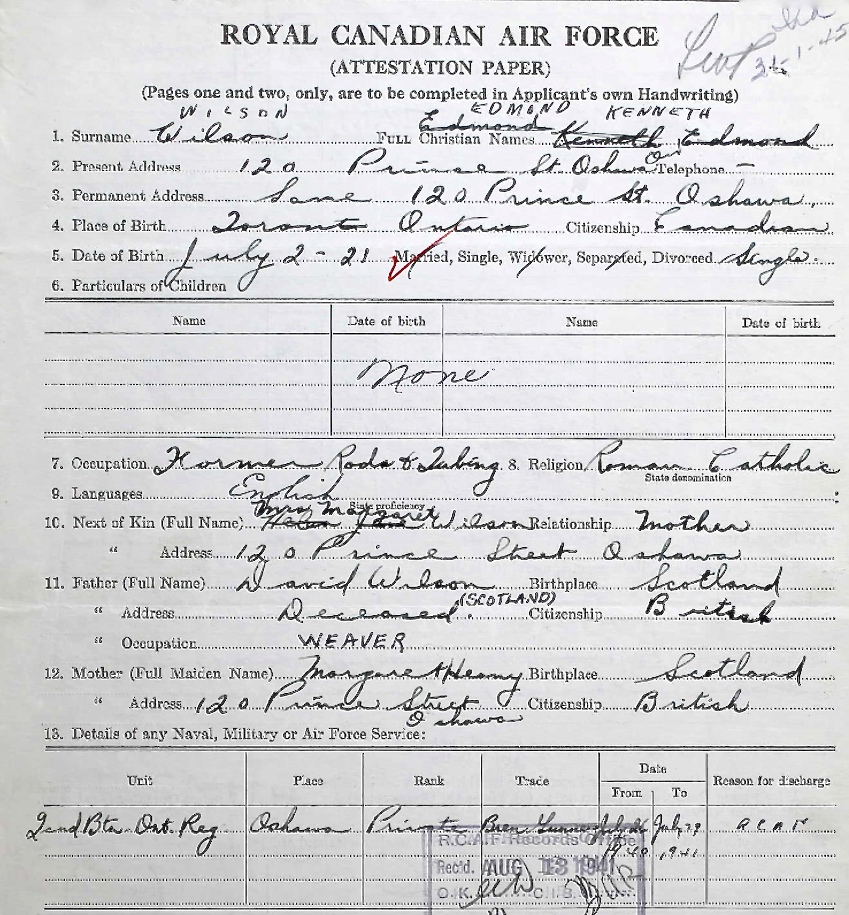 ROYAL CANADIAN AIR FORCE
(ATTESTATION PAPER)
31-1-45
(Pages one and two, only, are to be completed in Applicant's own Handwriting)
WILSON EDMOND KENNETH
Edmond
1. Surname Wilson FULL Christian Names Kenneth Edmond
2. Present Address 120 Prince St. Oshawa Ont Telephone —
3. Permanent Address Same 120 Prince St. Oshawa,
4. Place of Birth Toronto Ontario Citizenship Canadian
5. Date of Birth July 2 - 21 Married, Single, Widower, Separated, Divorced Single.
6. Particulars of Children
Name Date of birth Name Date of birth
None
7. Occupation Former Rods & Tubing 8. Religion Roman Catholic
State denomination
9. Languages English
State proficiency
Mrs Margaret
10. Next of Kin (Full Name) Wilson Relationship Mother
" Address 120 Prince Street Oshawa
11. Father (Full Name) David Wilson Birthplace Scotland
" Address Deceased. (SCOTLAND) Citizenship British
" Occupation WEAVER
12. Mother (Full Maiden Name) Margaret Heany Birthplace Scotland
" Address 120 Prince Street Citizenship British
Oshawa
13. Details of any Naval, Military or Air Force Service:
Unit Place Rank Trade Date Reason for discharge
From To
2nd Btn. Ont. Reg Oshawa Private Bren Gunner July 26 July 29 R C A F
1940 1941
R.C.A.F. Records Office
Recd. AUG 13 1941
O.K. C.I.B.